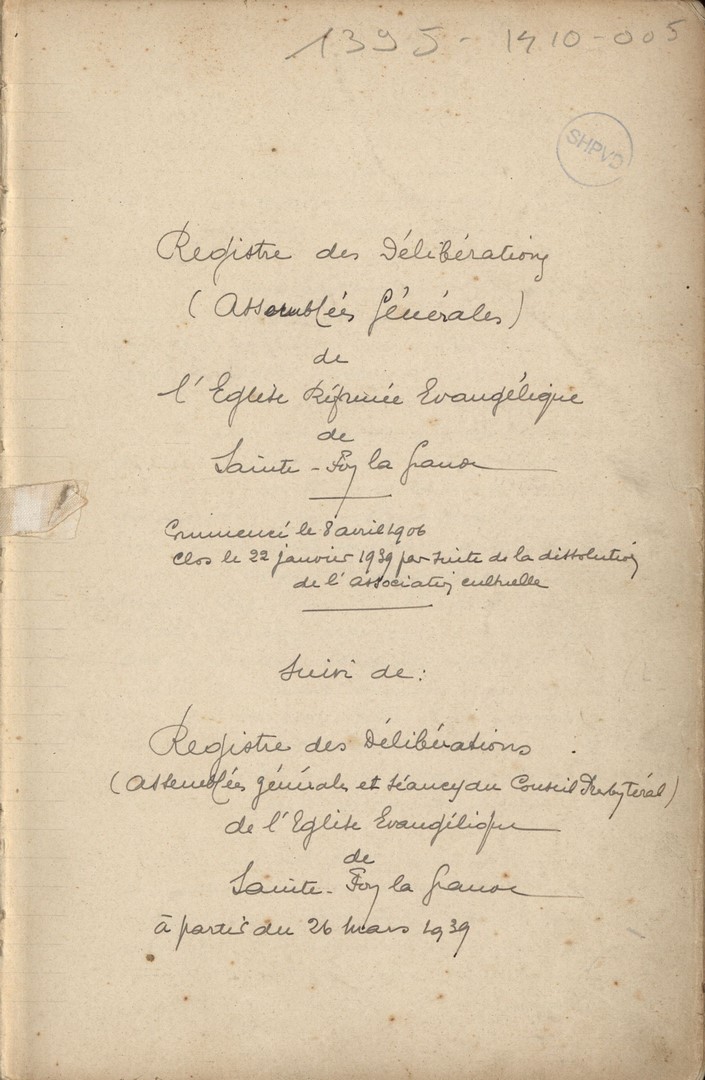 1395-1410-005
SHPVD
Registre des Délibérations
(Assemblées Générales)
de
l'Eglise Réformée Evangélique
de
Sainte-Foy la Grande
Commencé le 8 avril 1906
clos le 22 janvier 1939 par suite de la dissolution
de l'association cultuelle
Suivi de :
Registre des Délibérations
(Assemblées générales et séances du Conseil Presbytéral)
de l'Eglise Evangélique
de
Sainte-Foy la Grande
à partir du 26 mars 1939